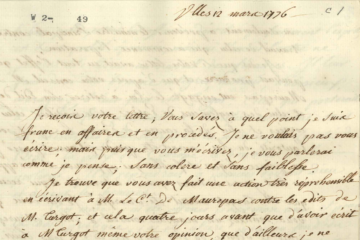 W 27 49
Vlles 12 mars 1776
c 1
Je recois votre lettre, Vous savez à quel point je suis
franc en affaires et en procédés. Je ne voulais pas vous
écrire, mais puisque vous m'écrivez, je vous parlerai
comme je pense, sans colere et sans faiblesse.
Je trouve que vous avez fait une action très répréhensible
en ecrivant à M. Le Ct. de Maurepas contre les édits de
M. Turgot, et cela quatre jours avant que d'avoir écrit
à M. Turgot même votre opinion, que d'ailleurs, je ne